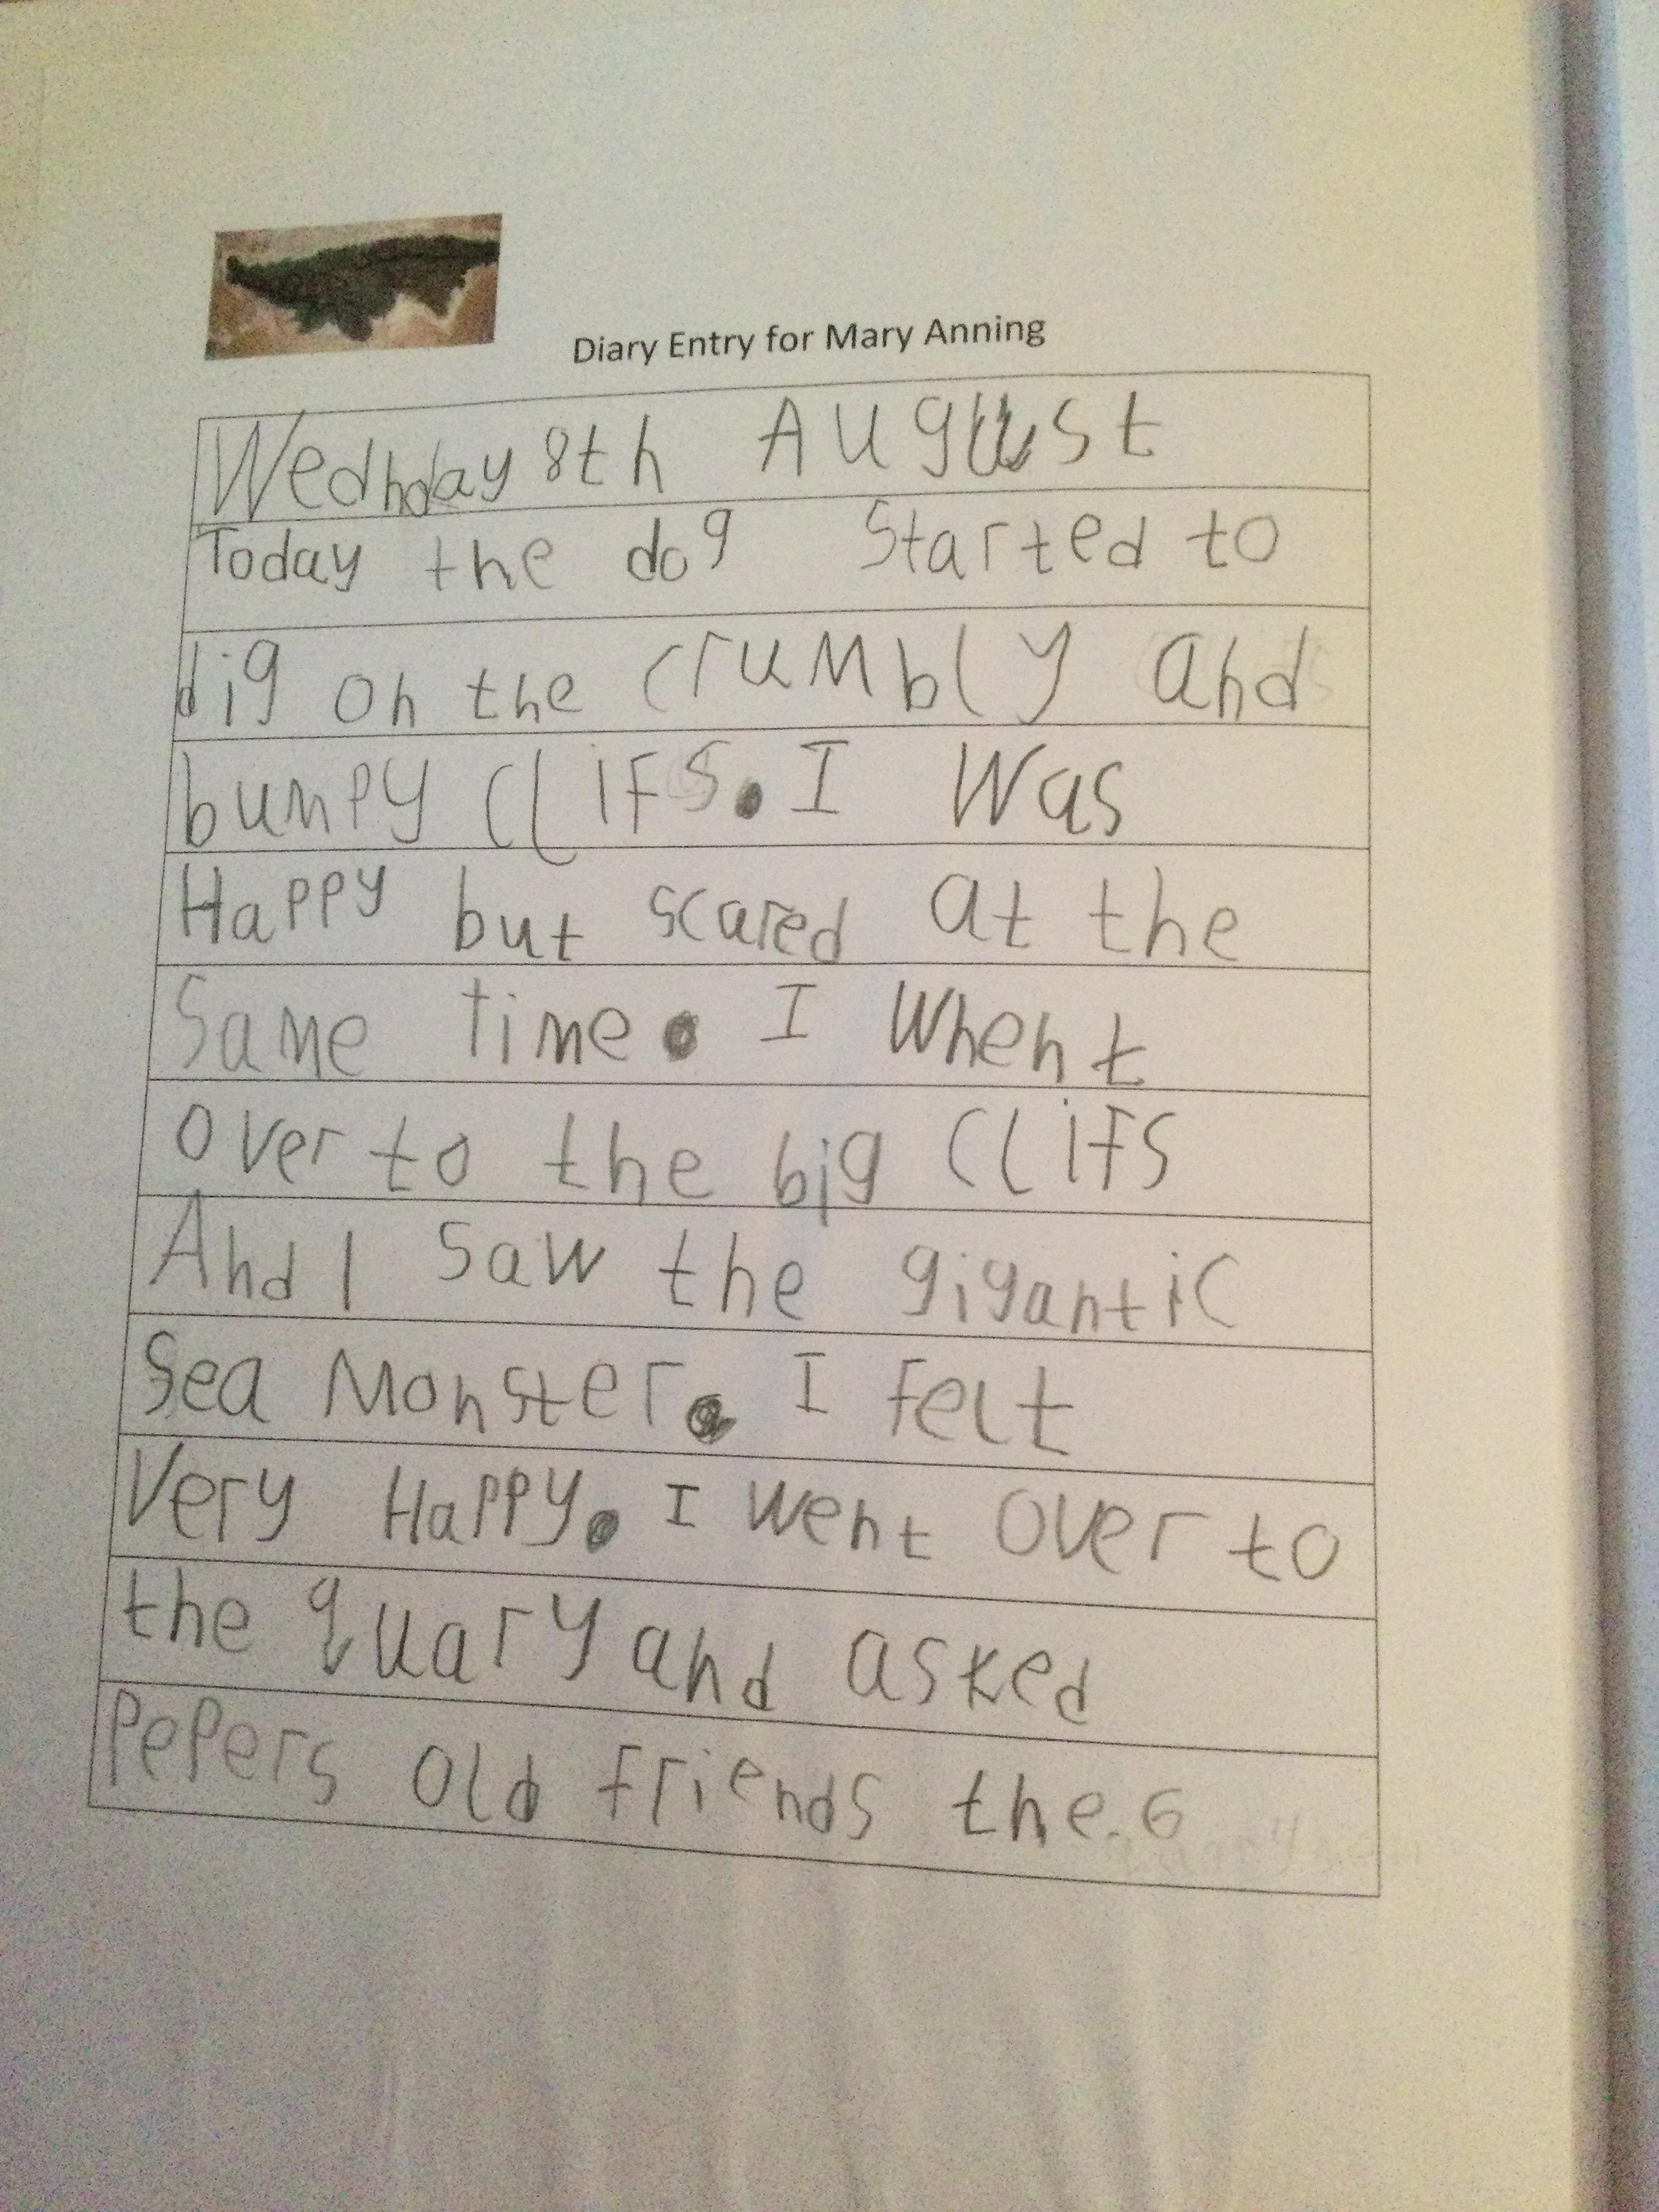 Diary Entry for Mary Anning
Wedhday 8th August
Today the dog started to
dig on the crumbly and
bumpy clifs. I was
Happy but scared at the
Same time. I whent
over to the big clifs
And I saw the gigantic
Sea Monster. I felt
Very Happy. I went over to
the quary and asked
Pepers old friends the. 6